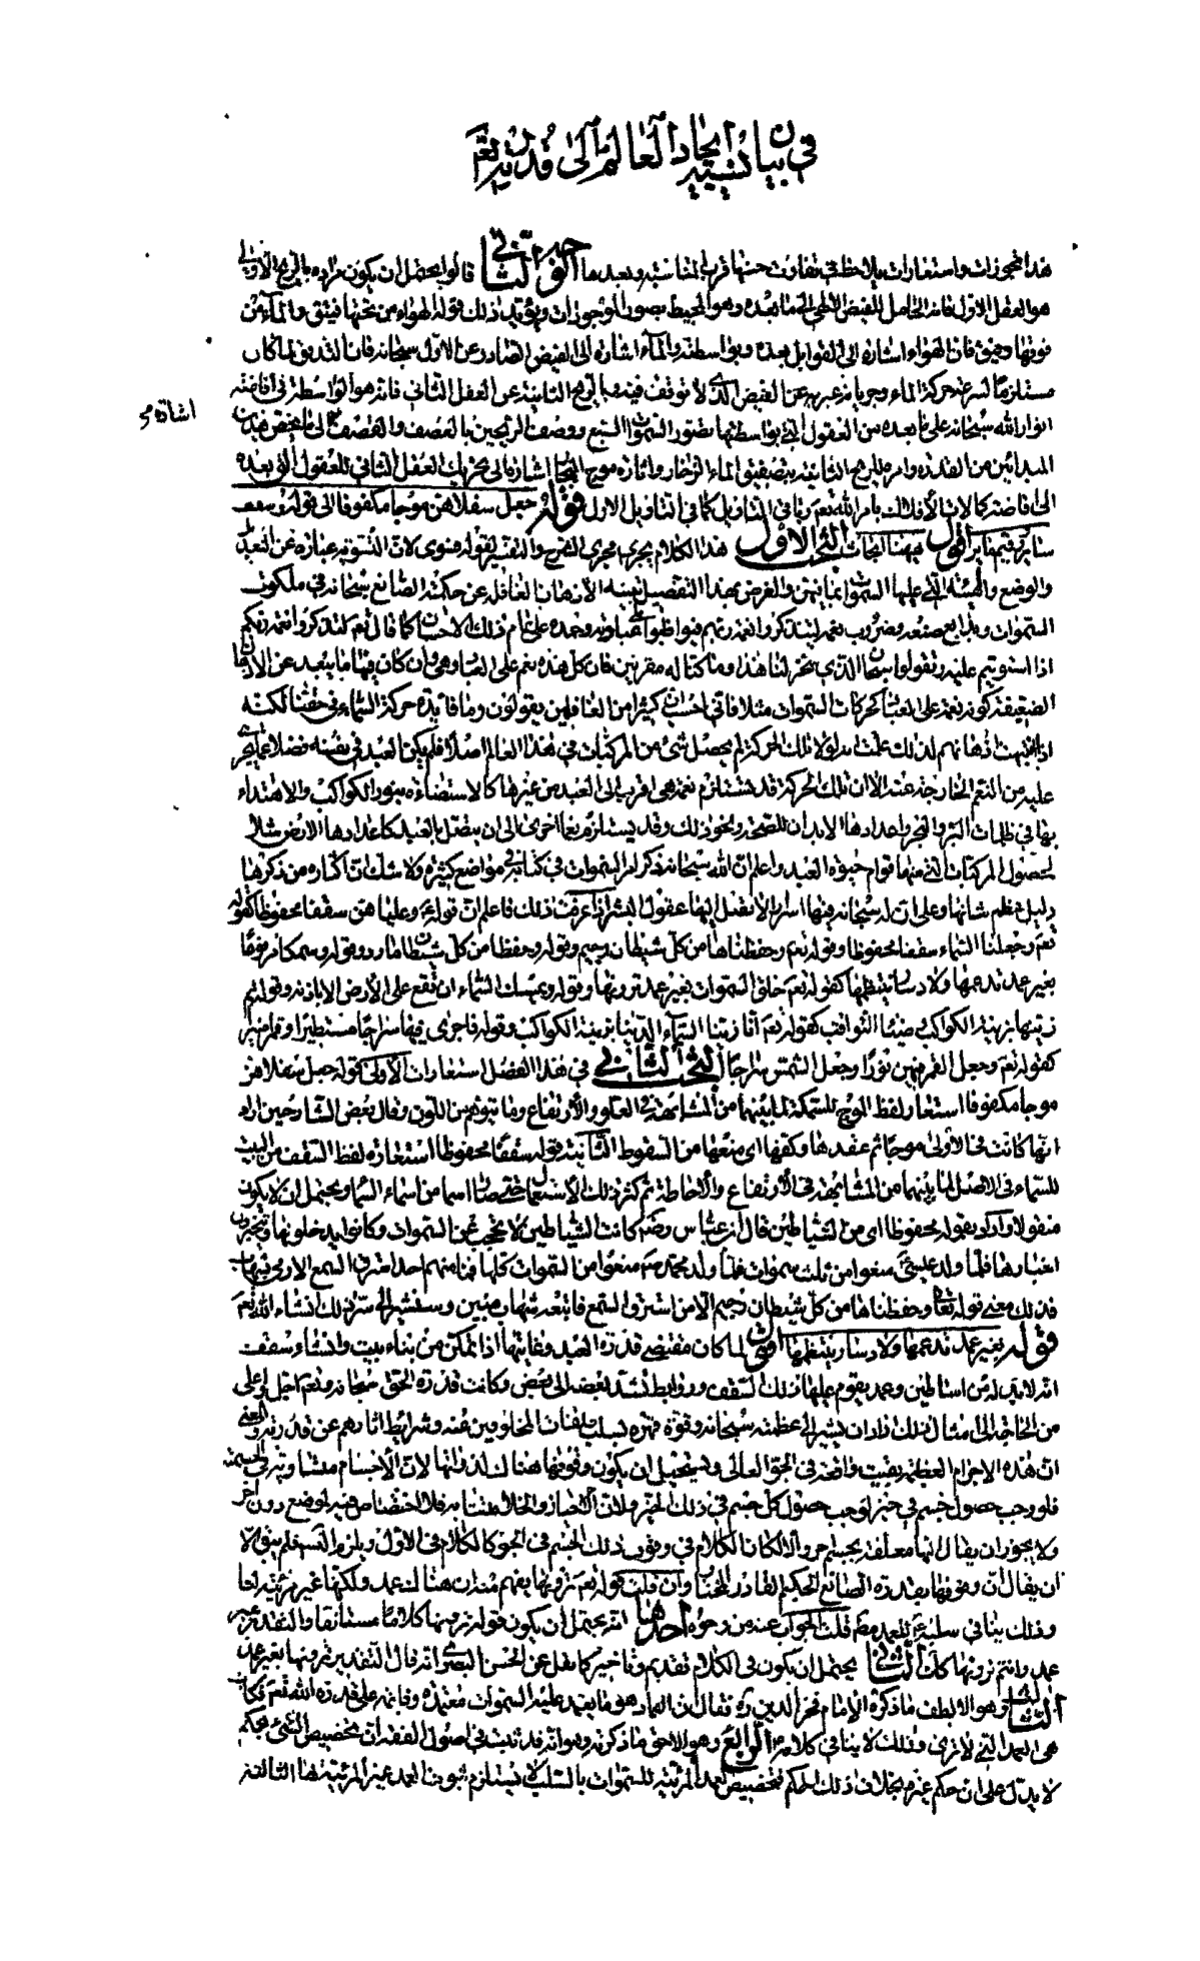 في بيان نسبة ايجاد العالم الى قدرته تعم
هذه تجوزات واستعارات يلاحظ في تفاوت حسنها قرب المناسبة وبعدها الوجه الثاني قالوا يحتمل ان يكون مراده بالريح الاولى
هو العقل الاول فانه الحامل للفيض الالهي الى ما بعده وهو المحيط بصور الموجودات ويؤيد ذلك قوله الهواء من تحتها فتيق والماء من
فوقها دفيق فان الهواء اشارة الى القوابل بعده وبواسطته والماء اشارة الى الفيض الصادر عن الاول سبحانه فان التدفق لما كان
مستلزما لسرعة حركة الماء وجريانه عبر به عن الفيض الذي لا توقف فيه وبالريح الثانية عن العقل الثاني فانه هو الواسطة في افاضة
اشارة م
انوار الله سبحانه على ما بعده من العقول التي بواسطتها تصور السموات السبع ووصف الريحين بالعصف والقصف الى ما يختص هذين
المبدئين من القدرة وامره للريح الثانية بتصفيق الماء الزخار واثارة موج البحار اشارة الى تحريك العقل الثاني للعقول التي بعده
الى افاضة كمالات الافلاك بامر الله تعم وباقي التاويل كما في التاويل الاول قوله جعل سفلاهن موجا مكفوفا الى قوله وسقف
سائر ورقيم مائر اقول ههنا ابحاث البحث الاول هذا الكلام يجري مجرى الشرح والتفسير لقوله فسوى لان التسوية عبارة عن التعديل
والوضع والهيئة التي عليها السموات بما فيهن والغرض بهذا التفصيل تنبيه الاذهان الغافلة عن حكمة الصانع سبحانه في ملكوت
السموات وبدايع صنعه وضروب نعمه ليتذكروا نعمة ربهم فيواظبوا على عبادته وحمده على تمام ذلك الاحسان كما قال تعم لتذكروا نعمة ربكم
اذا استويتم عليه وتقولوا سبحان الذي سخر لنا هذا وما كنا له مقرنين فان كل هذه نعم على العباد وهي وان كان فيها ما يبعد عن الاذهان
الضعيفة كونه نعمة على العباد كحركات السموات مثلا فاني احسب ان كثيرا من الغافلين يقولون وما فائدة حركة السماء في حقنا لكنه
اذا انتبهت اذهانهم لذلك علمت انه لولا تلك الحركة لم يحصل شئ من المركبات في هذا العالم اصلا فلم يكن العبد في نفسه فضلا عما يجري
عليه من النعم الخارجة عنه الا ان تلك الحركة قد تستلزم نعمة هي اقرب الى العبد من غيرها كالاستضاءة بنور الكواكب والاهتداء
بها في ظلمات البر والبحر واعدادها الابدان للصحة ونحو ذلك وقد يستلزم نعما اخرى الى ان يتصل بالعبد كاعدادها الارض مثلا
لحصول المركبات التي منها قوام حيوة العبد واعلم ان الله سبحانه ذكر امر السموات في كتابه في مواضع كثيرة ولا شك ان اكثاره من ذكرها
دليل عظم شانها وعلى ان له سبحانه فيها اسرارا لا تصل اليها عقول البشر اذا عرفت ذلك فاعلم ان قوله وعلياهن سقفا محفوظا كقوله
تعم وجعلنا السماء سقفا محفوظا وقوله تعم وحفظناها من كل شيطان رجيم وقوله وحفظا من كل شيطان مارد وقوله وسمكا مرفوعا
بغير عمد تدعمها ولا دسار ينتظمها كقوله تعم خلق السموات بغير عمد ترونها وقوله ويمسك السماء ان تقع على الارض الا باذنه وقوله ثم
زينها بزينة الكواكب وضياء الثواقب كقوله تعم انا زينا السماء الدنيا بزينة الكواكب وقوله فاجرى فيها سراجا مستطيرا وقمرا منيرا
كقوله تعم وجعل القمر فيهن نورا وجعل الشمس سراجا البحث الثاني في هذا الفصل استعارات الاولى قوله جعل سفلاهن
موجا مكفوفا استعار لفظ الموج للسمكة لما بينهما من المشابهة في العلو والارتفاع وما يتوهم من اللون وقال بعض الشارحين اراد
انها كانت في الاولى موجا ثم عقدها وكفها اي منعها من السقوط الثانية قوله سقفا محفوظا استعارة لفظ السقف من البيت
للسماء في الاصل لما بينهما من المشابهة في الارتفاع والاحاطة ثم كثر ذلك الاستعمال حتى صار اسما من اسماء السماء ويحتمل ان لا يكون
منقولا واراد بقوله محفوظا اي من الشياطين قال ابن عباس رضه كانت الشياطين لا تحجب عن السموات وكانوا يدخلونها ويتخبرون
اخبارها فلما ولد عيسى ع منعوا من ثلث سموات فلما ولد محمد صم منعوا من السموات كلها فما منهم احد استرق السمع الا رمي بشهاب
فذلك معنى قوله تعالى وحفظناها من كل شيطان رجيم الا من استرق السمع فاتبعه شهاب مبين وسنشير الى سر ذلك انشاء الله تعم
قوله بغير عمد تدعمها ولا دسار ينتظمها اقول لما كان مقتضى قدرة العبد وغايتها اذا تمكن من بناء بيت وانشاء سقف
انه لابد له من اساطين وعمد يقوم عليها ذلك السقف وروابط تشد بعضه الى بعض وكانت قدرة الحق سبحانه وتعم اجل واعلى
من الحاجة الى امثال ذلك اراد ان يشير الى عظمته سبحانه وقوة قهره بسلب صفات المخلوقين عنه وشرايط اثارهم عن قدرته والمعنى
ان هذه الاجرام العظيمة بقيت واقفة في الجو العالي ويستحيل ان يكون وقوفها هناك لذواتها لان الاجسام متساوية في الجسمية
فلو وجب حصول جسم في حيز لوجب حصول كل جسم في ذلك الحيز ولان الاحياز والخلاء متشابه فلا اختصاص فيه لوضع دون اخر
ولا يجوز ان يقال انها معلقة بجسم اخر والا لكان الكلام في وقوف ذلك الجسم في الجو كالكلام في الاول ويلزم التسلسل فلم يبق الا
ان يقال ان وقوفها بقدرة الصانع الحكيم القادر المختار وان قلت قوله تعم ترونها يفهم منه ان هناك عمد ولكنها غير مرئية لنا
وذلك ينافي سلبه ع للعمد مطم قلت الجواب عنه من وجوه احدها انه يحتمل ان يكون قوله ترونها كلاما مستانفا والتقدير بغير
عمد وانتم ترونها كذلك الثاني يحتمل ان يكون في الكلام تقديم وتاخير كما نقل عن الحسن البصري انه قال التقدير ترونها بغير عمد
الثالث وهو الالطف ما ذكره الامام فخر الدين ره فقال ان العماد هو ما يعتمد عليه السموات معتمدة وقائمة على قدرة الله تعم فكانت
هي العمد التي لا ترى وذلك لا ينافي كلامه ع الرابع وهو الاحق ما ذكرته وهو انه قد ثبت في اصول الفقه ان تخصيص الشئ بحكم
لا يدل على ان حكم غيره بخلاف ذلك الحكم فتخصيص العمد المرئية للسموات بالسلب لا يستلزم ثبوت العمد غير المرئية لها الثالثة